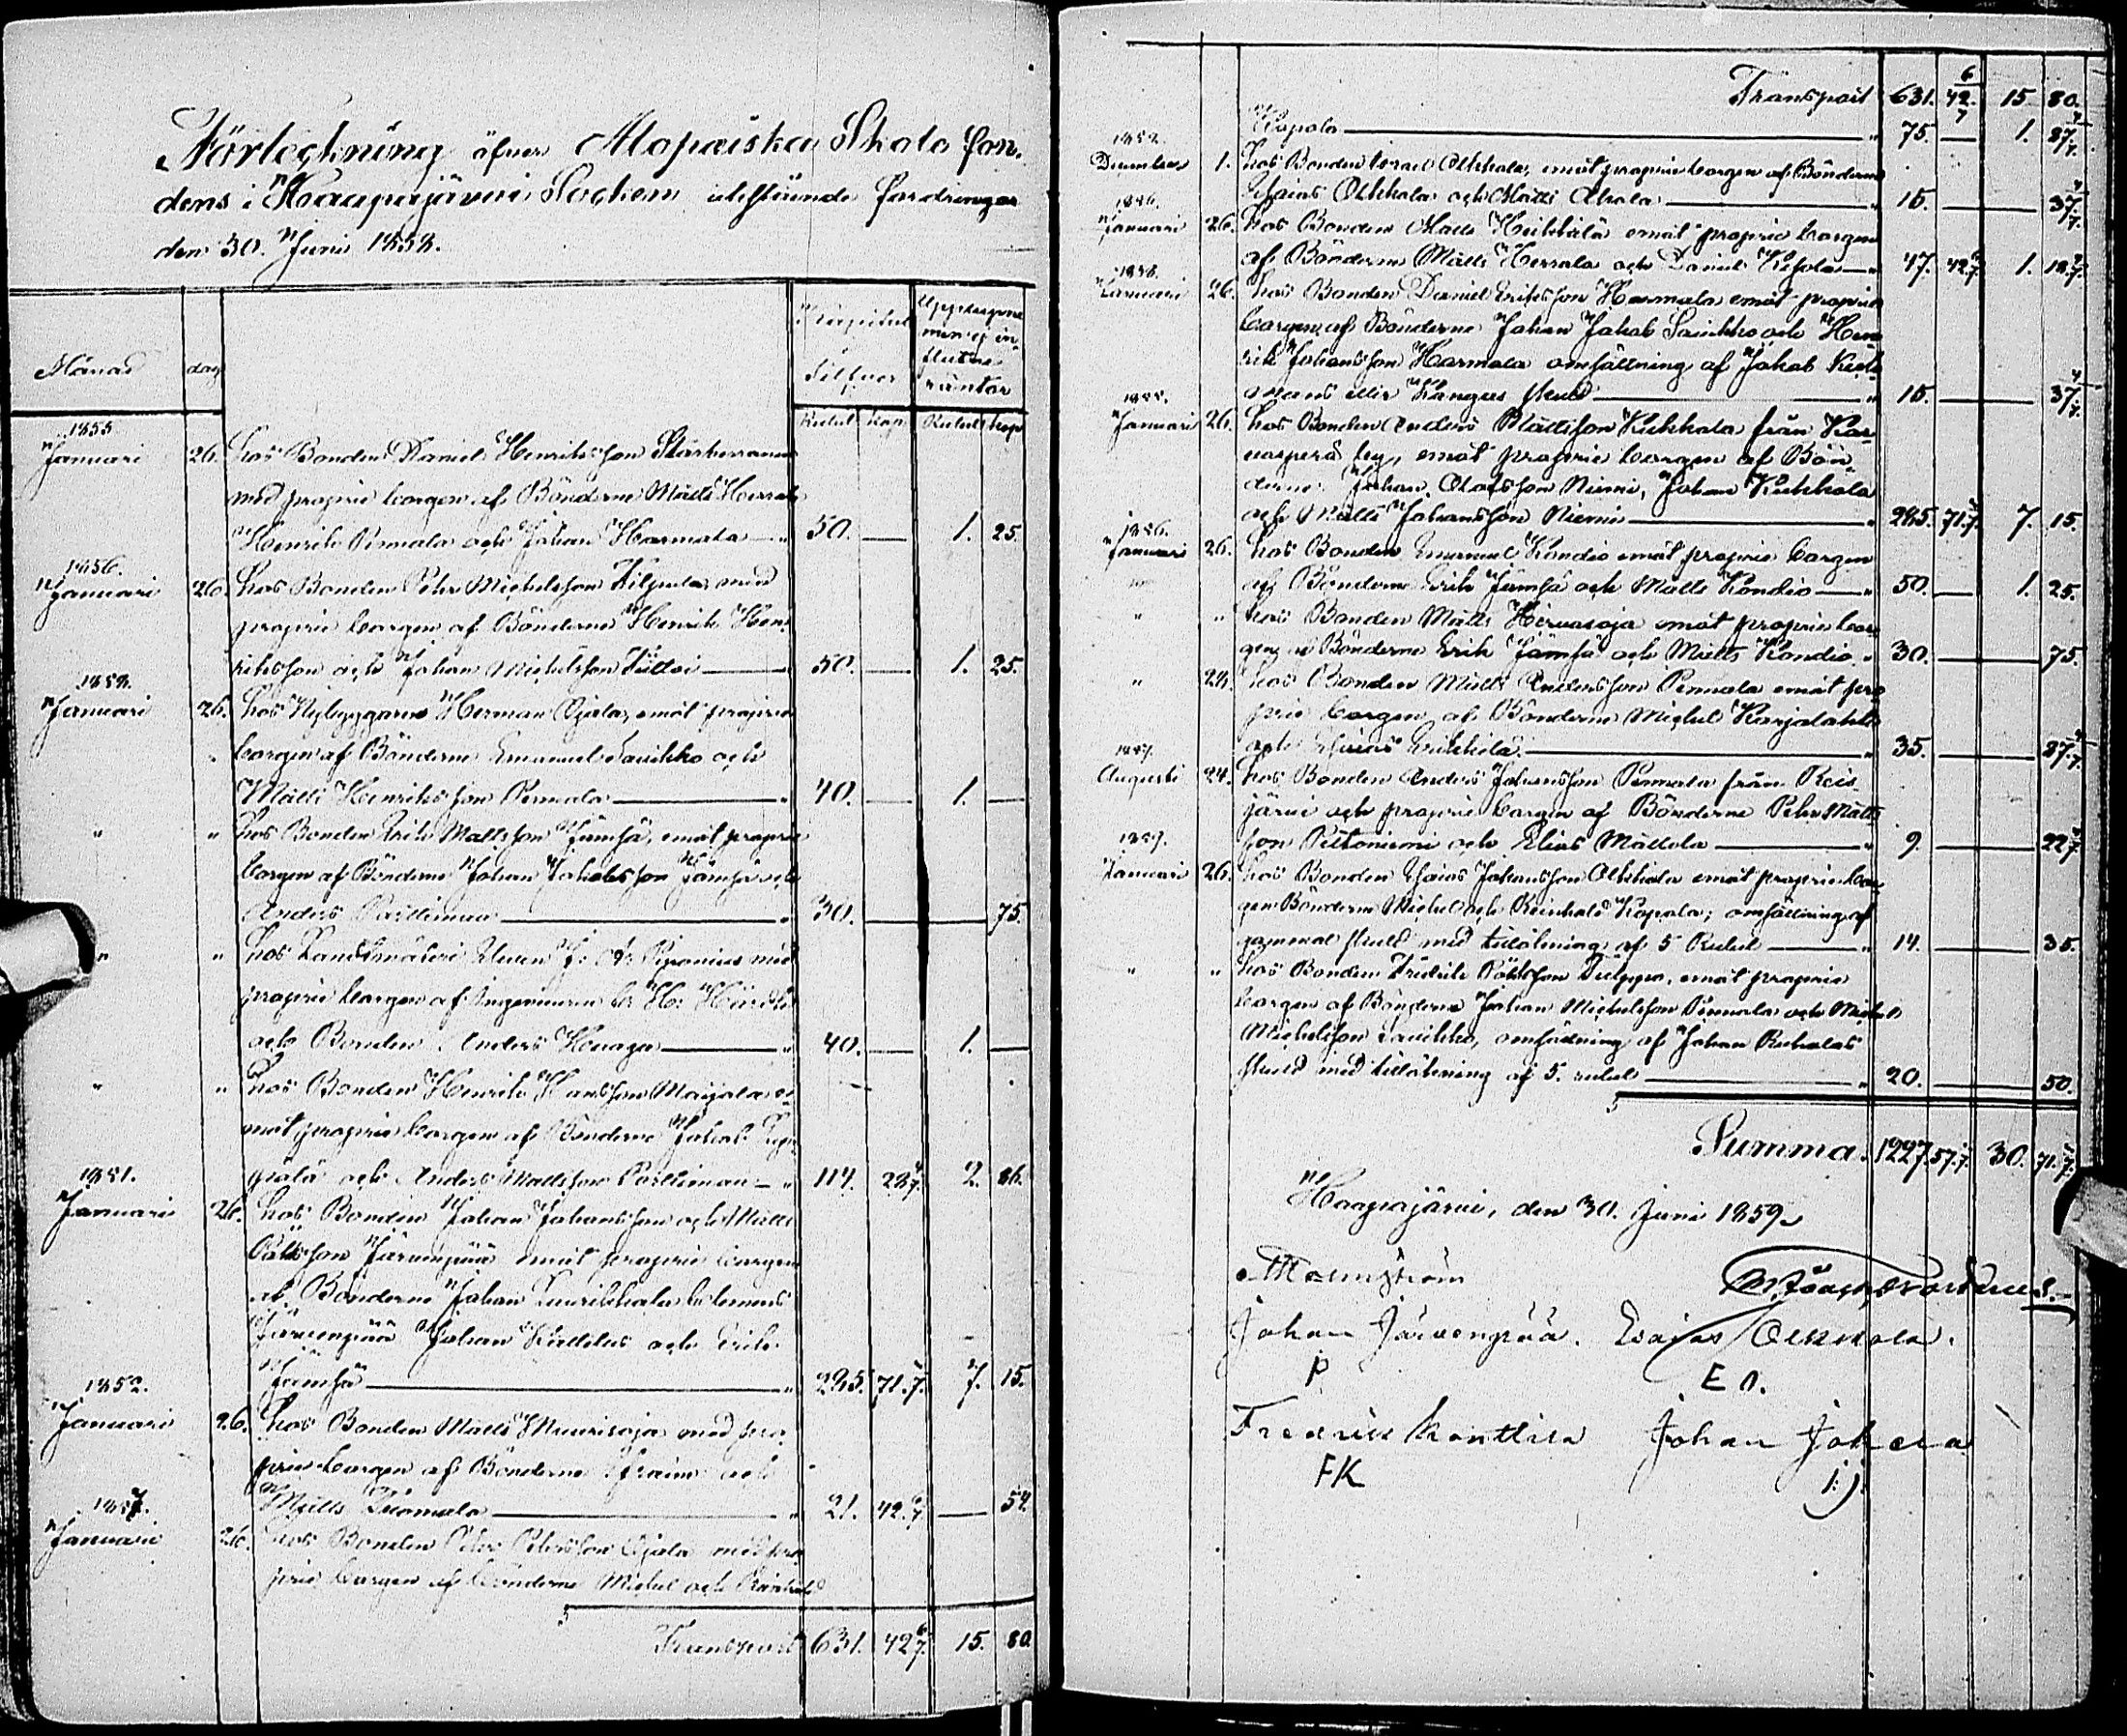 Förteckning öfver Alopæiska Skolo fon-
dens i Haapajärvi Socken utestående fordringar
den 30. Juni 1858.
Månad dag Kapital Silfver Upplupna men ej in-
flutna räntor
Rubel Kop. Rubel Kop
1855
Januari 26. hos Bonden Daniel Henriksson
med proprie borgen af Bönderne Matts Herrala
Henrik Pennala och Johan Harmala 50. — 1. 25.
1856.
Januari 26. hos Bonden Pehr Michelsson Kilpula med
proprie borgen af Bönderne Henrik Hen-
riksson och Johan Michelsson 50. — 1. 25.
1858.
Januari 26. hos Nybyggaren Herman Ojala, emot proprie
borgen af Bönderne Emanuel Saukko och
Matts Henriksson Pennala 40. — 1. —
" " hos Bonden Erik Mattsson Jämsä, emot proprie
borgen af Bönderne Johan Jakobsson Jämsä och
Anders Parttimaa 30. — 75.
" " hos Landtmäteri Eleven J: A: Piponius med
proprie borgen af Ingenieuren H:
och Bonden Anders 40. — 1. —
" " hos Bonden Henrik Hansson Maijala e-
mot proprie borgen af Bönderne Jakob
och Anders Mattsson Parttimaa 114. 28 4/7. 2. 86.
1851.
Januari 26. hos Bonden Johan Johansson och Matts
Järvenpää emot proprie borgen
af Bönderne Johan
Järvenpää Johan och Erik
Jämsä 285. 71. 3/7. 7. 15.
1852.
Januari 26. hos Bonden Matts Muurisoja med pro-
prie borgen af Bönderne Efraim och
Matts Tuomala 21. 42. 6/7. — 54.
1857.
Januari 26. hos Bonden Pehr Pehrsson Ojala med pro-
prie borgen af Bönderne Michel och Reinhold
Transport 631. 42 6/7. 15. 80.
Transport 631. 42. 6/7 15. 80.
Kopola 75. — 1. 87 4/7.
1852.
December 1. hos Bonden Israel Olkkola, emot proprie borgen af Bönderne
Esaias Olkkola och Matts Ahola 15. — 37 4/7.
1856.
Januari 26. hos Bonden Matts Heikkilä emot proprie borgen
af Bönderne Matts Herrala och Daniel 47. 42 6/7. 1. 18 4/7.
1858.
Januari 26. hos Bonden Daniel Eriksson Harmala emot proprie
borgen af Bönderne Johan Jakob Saukko och Hen-
rik Johansson Harmala omsättning af Jakob
eller Kangas skuld 15. — 37 4/7.
1855.
Januari 26. hos Bonden Anders Mattsson Kukkola från Kar-
by, emot proprie borgen af Bön-
derne Johan Olofsson Niemi, Johan Kukkola
och Matts Johansson Niemi 285. 71. 3/7. 7. 15.
1856.
Januari 26. hos Bonden Emanuel Kandio emot proprie borgen
af Bönderne Erik Jämsä och Matts Kandio 50. — 1. 25.
" " hos Bonden Matts Hirvasoja emot proprie bor-
gen af Bönderne Erik Jämsä och Matts Kandio 30. — 75.
" 28. hos Bonden Matts Andersson Pennala emot pro-
prie borgen af Bönderne Michel Karjalahti
och Esaias Erkkilä 35. — 87 4/7.
1857.
Augusti 24. hos Bonden Anders Johansson Pennala från Reis-
järvi och proprie borgen af Bönderne Pehr Matts-
son Pietaniemi och Elias Mattola 9. — 22 4/7.
1859.
Januari 26. hos Bonden Esaias Johansson Olkkola emot proprie bor-
gen Bönderne Michel och Reinhold Kopola; omsättning af
gammal skuld med tillökning af 5 Rubel 14. — 35.
" " hos Bonden Fredrik emot proprie
borgen af Bönderne Johan Michelsson Pennala och Michel
Michelsson Saukko, omsättning af Johan
skuld med tillökning af 5. rubel 20. — 50.
Summa. 1227. 57. 1/7. 30. 71. 3/7.
Haapajärvi, den 30. Juni 1859.
Johan Järvenpää. Esaias Olkkola.
P E O.
Fredrik Konttila Johan Jokela
FK J:J: